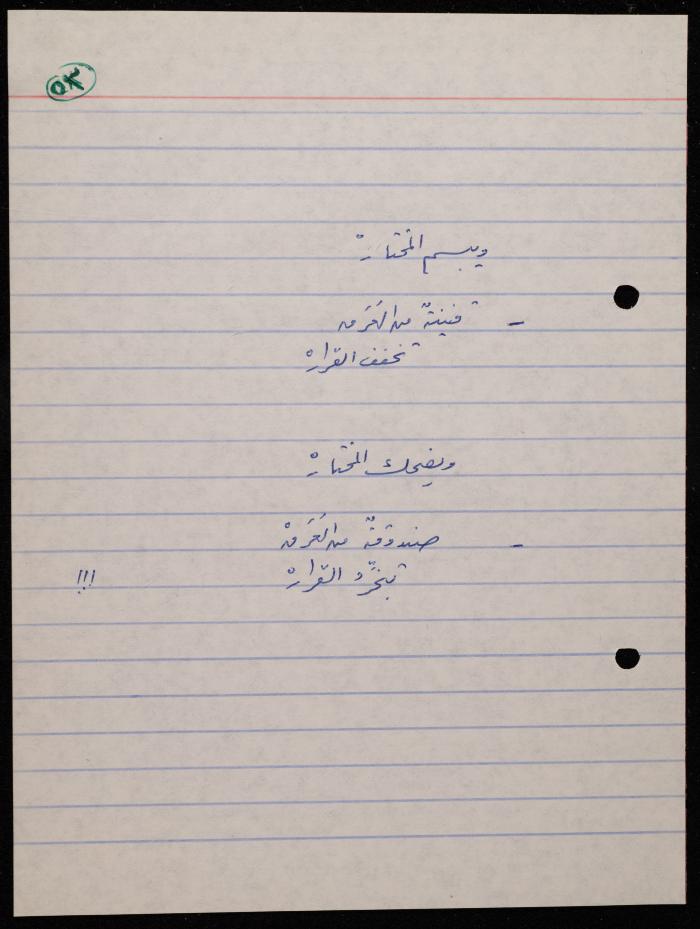 ٥٣
ويبسم المختارْ
- قنينةٌ من العَرَقْ
تخفف القرارْ
ويضحك المختارْ
- صندوقةٌ من العَرَقْ
تبخّر القرارْ !!!